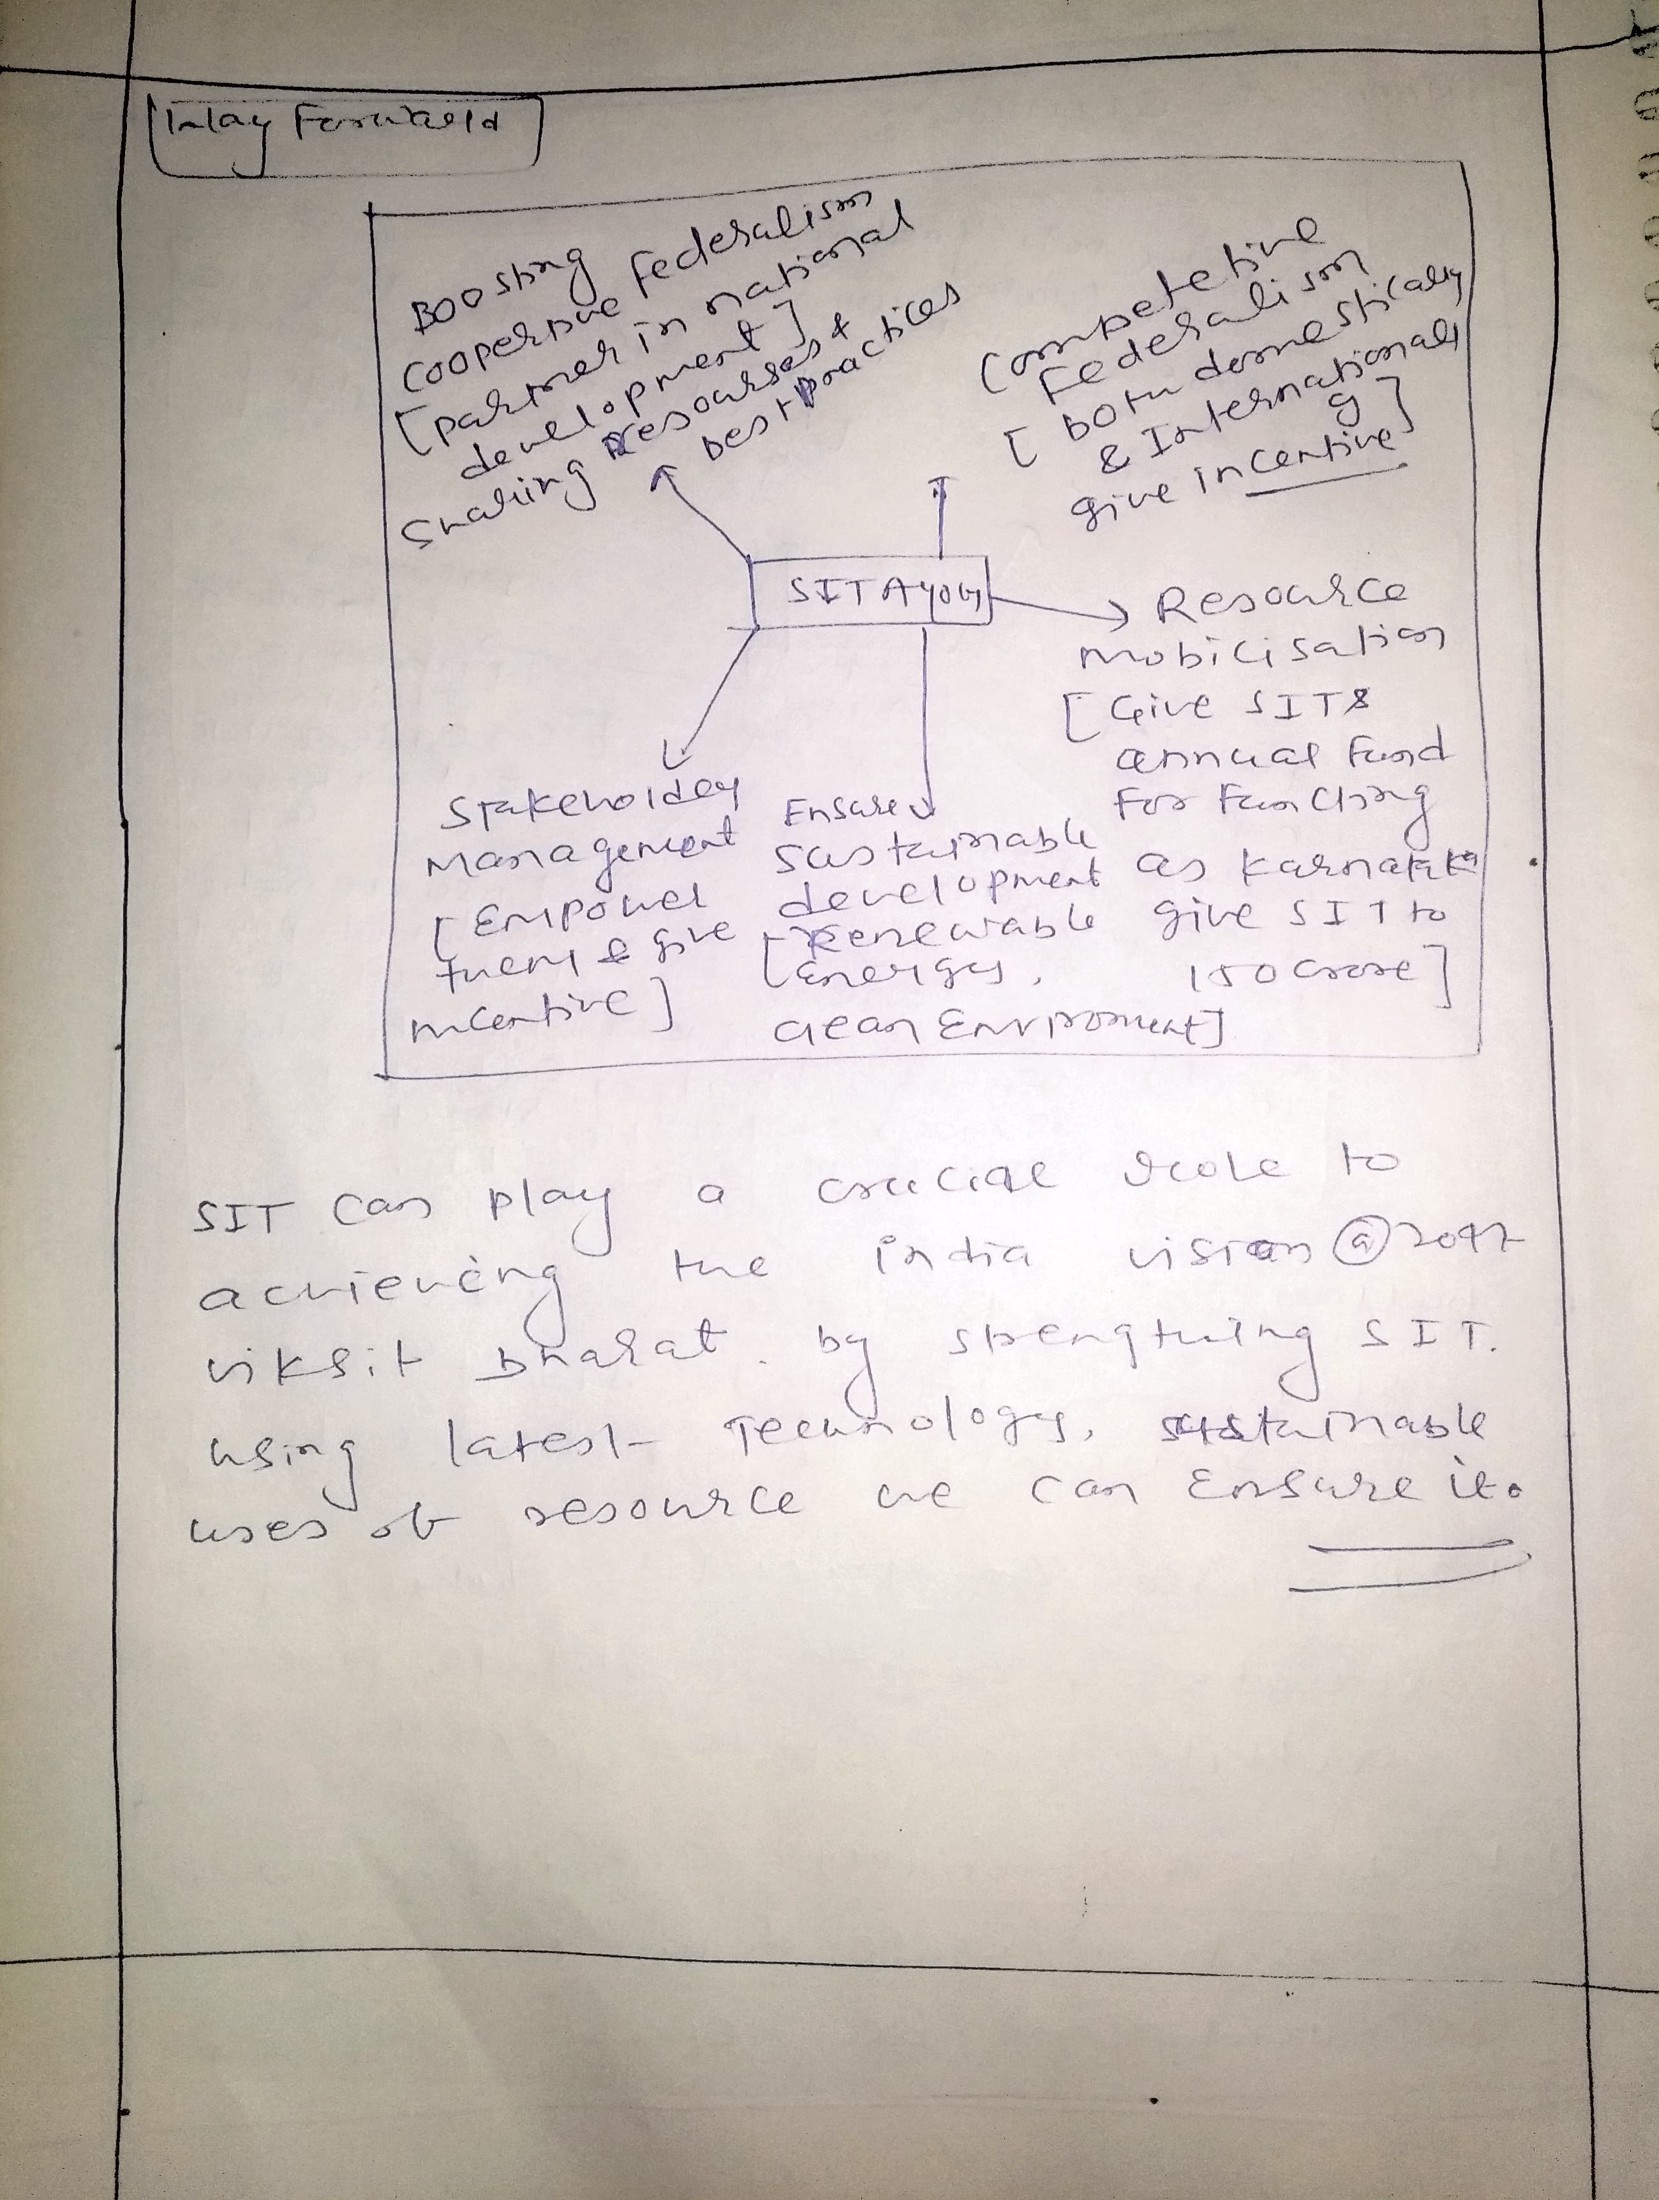 Way Forward
Boosting
cooperative Federalism
[partner in national
development]
sharing resourses &
best practices
Competetive
Federalism
[ both domestically
& Internationally]
give incentive
SIT AYOG
Resource
mobilisation
[ Give SITs
annual fund
for functiong
as Karnataka
give SIT to
150 crore]
Stakeholdey
Management
[Empower
them & give
incentive]
Ensure
sustainable
development
[renewable
energy,
clean Enviroment]
SIT can play a crucial role to
achieving the india vision @2047
viksit bharat. by strengthing SIT.
using latest Technology, sustainable
uses of resource we can ensure it.